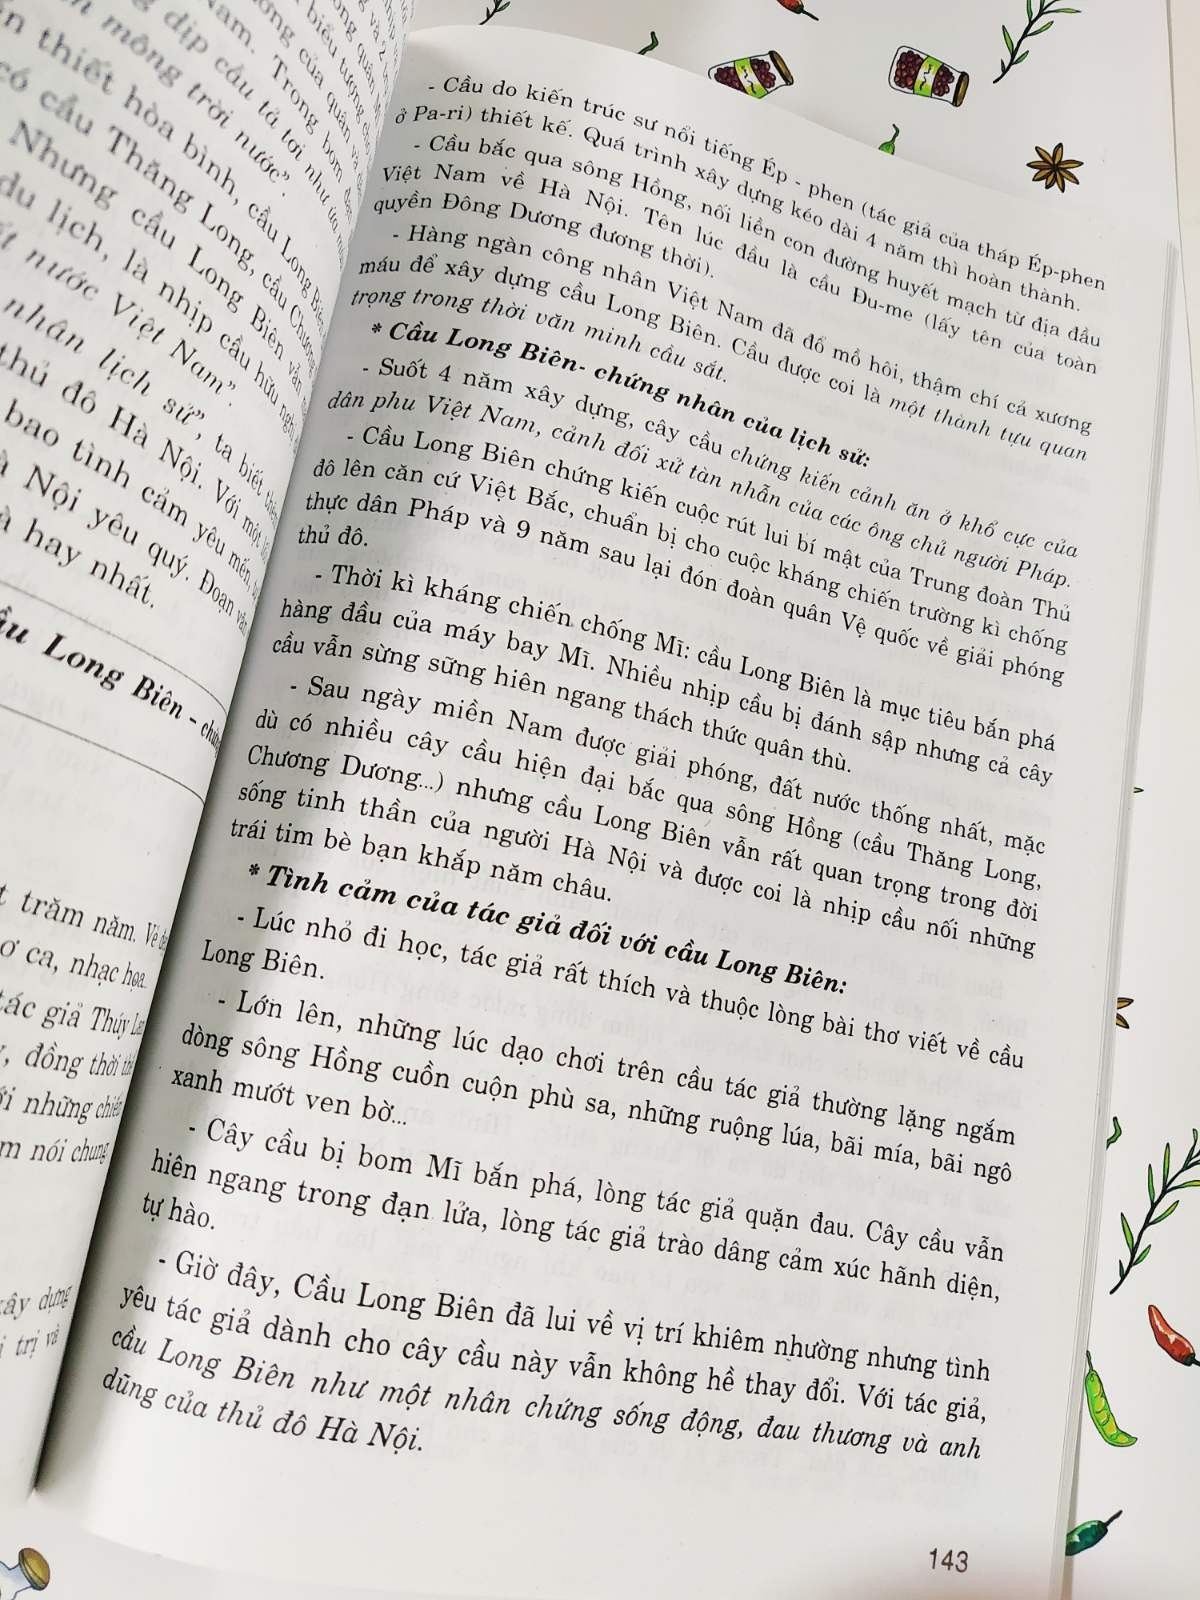 Nam. Trong bom đạn
mông trời nước".
thiết hòa bình, cầu Long Biên
có cầu Thăng Long, cầu Chương
Nhưng cầu Long Biên vẫn
du lịch, là nhịp cầu hữu nghị
nước Việt Nam".
nhân lịch sử", ta biết thêm
thủ đô Hà Nội. Với một
bao tình cảm yêu mến,
Nội yêu quý. Đoạn văn
hay nhất.
Cầu Long Biên - chứng
trăm năm.
ca, nhạc họa.
tác giả Thúy Lan
đồng thời
những chiến
nói chung
xây dựng
trị và
- Cầu do kiến trúc sư nổi tiếng Ép - phen (tác giả của tháp Ép-phen
ở Pa-ri) thiết kế. Quá trình xây dựng kéo dài 4 năm thì hoàn thành.
- Cầu bắc qua sông Hồng, nối liền con đường huyết mạch từ địa đầu
Việt Nam về Hà Nội. Tên lúc đầu là cầu Đu-me (lấy tên của toàn
quyền Đông Dương đương thời).
- Hàng ngàn công nhân Việt Nam đã đổ mồ hôi, thậm chí cả xương
máu để xây dựng cầu Long Biên. Cầu được coi là một thành tựu quan
trọng trong thời văn minh cầu sắt.
* Cầu Long Biên- chứng nhân của lịch sử:
- Suốt 4 năm xây dựng, cây cầu chứng kiến cảnh ăn ở khổ cực của
dân phu Việt Nam, cảnh đối xử tàn nhẫn của các ông chủ người Pháp.
- Cầu Long Biên chứng kiến cuộc rút lui bí mật của Trung đoàn Thủ
đô lên căn cứ Việt Bắc, chuẩn bị cho cuộc kháng chiến trường kì chống
thực dân Pháp và 9 năm sau lại đón đoàn quân Vệ quốc về giải phóng
thủ đô.
- Thời kì kháng chiến chống Mĩ: cầu Long Biên là mục tiêu bắn phá
hàng đầu của máy bay Mĩ. Nhiều nhịp cầu bị đánh sập nhưng cả cây
cầu vẫn sừng sững hiên ngang thách thức quân thù.
- Sau ngày miền Nam được giải phóng, đất nước thống nhất, mặc
dù có nhiều cây cầu hiện đại bắc qua sông Hồng (cầu Thăng Long,
Chương Dương...) nhưng cầu Long Biên vẫn rất quan trọng trong đời
sống tinh thần của người Hà Nội và được coi là nhịp cầu nối những
trái tim bè bạn khắp năm châu.
* Tình cảm của tác giả đối với cầu Long Biên:
- Lúc nhỏ đi học, tác giả rất thích và thuộc lòng bài thơ viết về cầu
Long Biên.
- Lớn lên, những lúc dạo chơi trên cầu tác giả thường lặng ngắm
dòng sông Hồng cuồn cuộn phù sa, những ruộng lúa, bãi mía, bãi ngô
xanh mướt ven bờ...
- Cây cầu bị bom Mĩ bắn phá, lòng tác giả quặn đau. Cây cầu vẫn
hiên ngang trong đạn lửa, lòng tác giả trào dâng cảm xúc hãnh diện,
tự hào.
- Giờ đây, Cầu Long Biên đã lui về vị trí khiêm nhường nhưng tình
yêu tác giả dành cho cây cầu này vẫn không hề thay đổi. Với tác giả,
cầu Long Biên như một nhân chứng sống động, đau thương và anh
dũng của thủ đô Hà Nội.
143